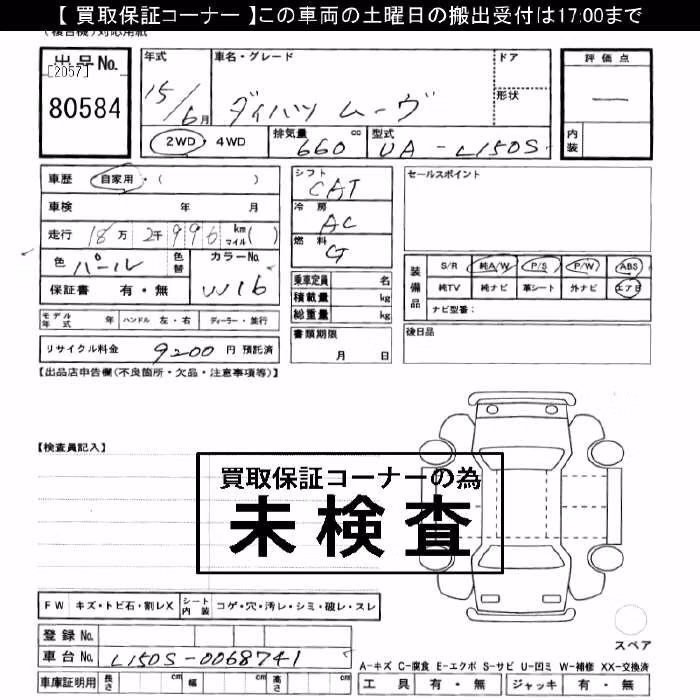 【 買取保証コーナー 】この車両の土曜日の搬出受付は17:00まで
出品No.
[2057]
80584
年式
15/6月
車名・グレード
ダイハツ ムーヴ
ドア
形状
評価点
—
内装
2WD・4WD
排気量 cc
660
型式
UA-L150S
車歴 自家用・( )
車検 年 月
走行 18万 2千 996 km マイル( )
色 パール 色替 カラーNo. W16
保証書 有・無
モデル年式 年 ハンドル 左・右 ディーラー・並行
リサイクル料金 9200 円 預託済
シフト
CAT
冷房
AC
燃料
G
乗車定員 名
積載量 kg
総重量 kg
書類期限
月 日
セールスポイント
装備品
S/R 純A/W P/S P/W ABS
純TV 純ナビ 革シート 外ナビ エアB
ナビ型番:
後日品
【出品店申告欄(不良箇所・欠品・注意事項等)】
【検査員記入】
買取保証コーナーの為
未検査
FW キズ・トビ石・割レX シート内装 コゲ・穴・汚レ・シミ・破レ・スレ
登録No.
車台No. L150S-0068741
車庫証明用 長さ cm 幅 cm 高さ cm
スペア
A-キズ C-腐食 E-エクボ S-サビ U-凹ミ W-補修 XX-交換済
工具 有・無 ジャッキ 有・無